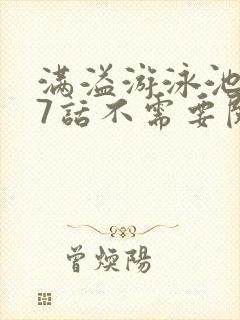 满溢游泳池
7話不需要
曾煐陽